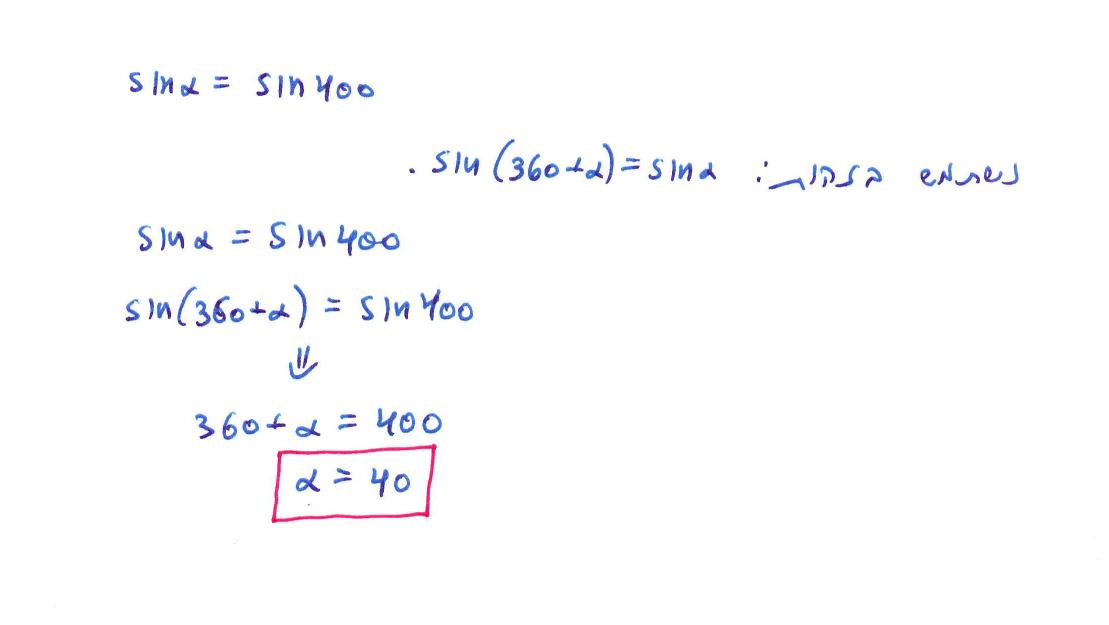 sinα = sin400
נשתמש בזהות: sin(360+α)=sinα.
sinα = sin400
sin(360+α) = sin400
⇓
360+α = 400
α = 40